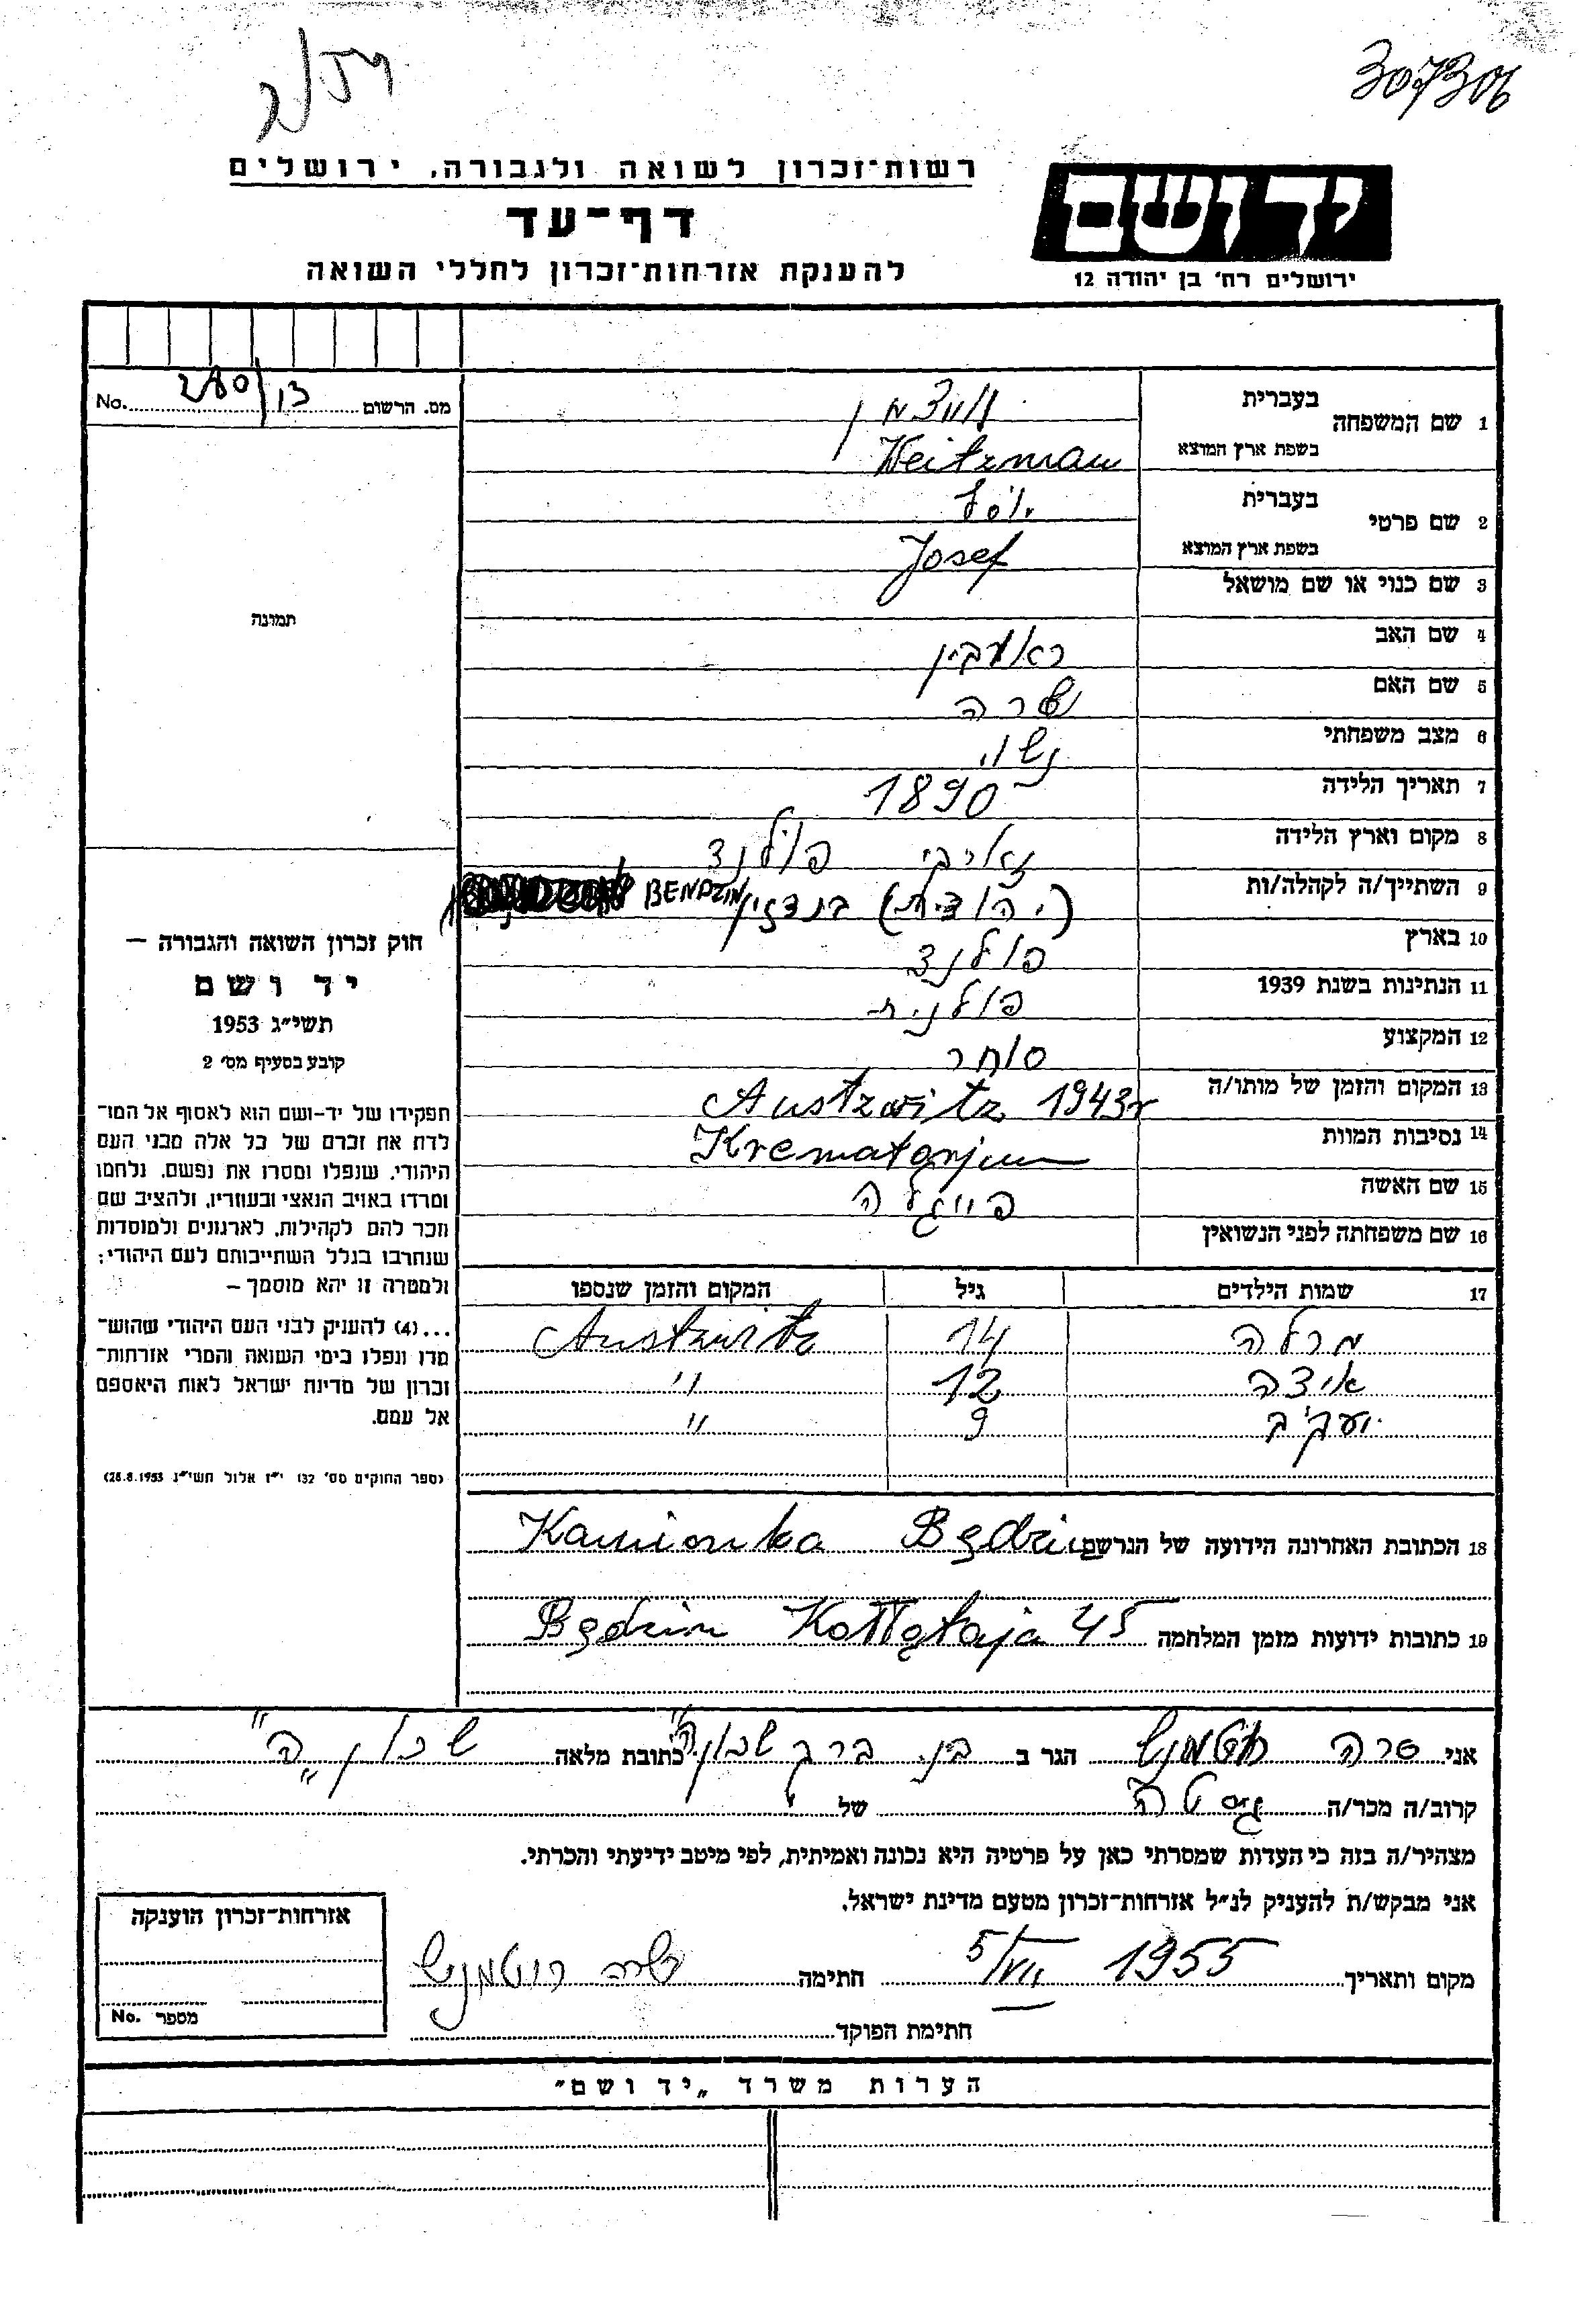 307306
רשות־זכרון לשואה ולגבורה, ירושלים
יד ושם
דף־עד
ירושלים רח׳ בן יהודה 12
להענקת אזרחות־זכרון לחללי השואה
מס. הרשום 280/13 No.
1 שם המשפחה בעברית
בשפת ארץ המוצא Weitzman
2 שם פרטי בעברית יוסף
בשפת ארץ המוצא Josef
3 שם כנוי או שם מושאל
תמונה
4 שם האב ראובין
5 שם האם שרה
6 מצב משפחתי נשוי
7 תאריך הלידה 1890
8 מקום וארץ הלידה פולנד
9 השתייך/ה לקהלה/ות (יהודית) בנדזין BENDZIN
10 בארץ פולנד
11 הנתינות בשנת 1939 פולנית
12 המקצוע סוחר
13 המקום והזמן של מותו/ה Austzwitz 1943r
14 נסיבות המוות Krematorjum
15 שם האשה פייגלה
16 שם משפחתה לפני הנשואין
חוק זכרון השואה והגבורה –
יד ושם
תשי״ג 1953
קובע בסעיף מס׳ 2
תפקידו של יד-ושם הוא לאסוף אל המו־
לדת את זכרם של כל אלה מבני העם
היהודי, שנפלו ומסרו את נפשם, נלחמו
ומרדו באויב הנאצי ובעוזריו, ולהציב שם
וזכר להם לקהילות, לארגונים ולמוסדות
שנחרבו בגלל השתייכותם לעם היהודי;
ולמטרה זו יהא מוסמך –
...(4) להעניק לבני העם היהודי שהוש־
מדו ונפלו בימי השואה והמרי אזרחות־
זכרון של מדינת ישראל לאות היאספם
אל עמם.
(ספר החוקים מס׳ 132 י״ז אלול תשי״ג 28.8.1953)
17 שמות הילדים גיל המקום והזמן שנספו
מרלה 14 Austzwitz
איצה 12 "
יעקב 9 "
18 הכתובת האחרונה הידועה של הנרשם Kamionka Będzin
19 כתובות ידועות מזמן המלחמה Będzin Kołłątaja 45
אני שרה הגר ב בני ברק שכון ה" כתובת מלאה שכון "ה"
קרוב/ה מכר/ה של
מצהיר/ה בזה כי העדות שמסרתי כאן על פרטיה היא נכונה ואמיתית, לפי מיטב ידיעתי והכרתי.
אני מבקש/ת להעניק לנ״ל אזרחות־זכרון מטעם מדינת ישראל.
מקום ותאריך 5/VII 1955 חתימה שרה
חתימת הפוקד
אזרחות־זכרון הוענקה
מספר No.
הערות משרד „יד ושם״